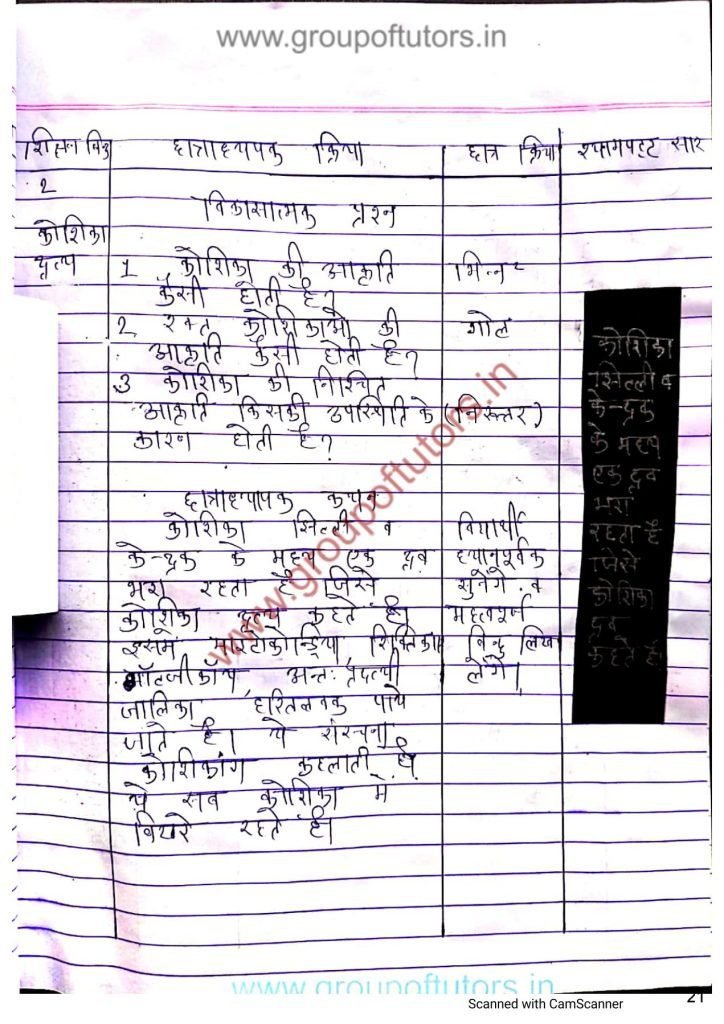 www.groupoftutors.in
शिक्षण बिन्दु छात्राध्यापक क्रिया छात्र क्रिया श्यामपट्ट सार
2
विकासात्मक प्रश्न
कोशिका
द्रव्य
1 कोशिका की आकृति भिन्न
कैसी होती है?
2 रक्त कोशिकाओं की गोल
आकृति कैसी होती है?
3 कोशिका की निश्चित
आकृति किसकी उपस्थिति के (निरुत्तर)
कारण होती है?
छात्राध्यापक कथन
कोशिका झिल्ली व विद्यार्थी
केन्द्रक के मध्य एक द्रव ध्यानपूर्वक
भरा रहता है जिसे सुनेगे व
कोशिका द्रव्य कहते है। महत्वपूर्ण
इसमें माइटोकोन्ड्रिया, रिक्तिका बिन्दु लिख
गॉल्जीकॉय, अन्तः द्रव्यी लेंगे।
जालिका, हरितलवक पाये
जाते है। ये संरचना
कोशिकांग कहलाती है
ये सब कोशिका में
बिखरे रहते है।
कोशिका
झिल्ली व
केन्द्रक
के मध्य
एक द्रव
भरा
रहता है
जिसे
कोशिका
द्रव
कहते है।
www.groupoftutors.in
www.groupoftutors.in
Scanned with CamScanner
21